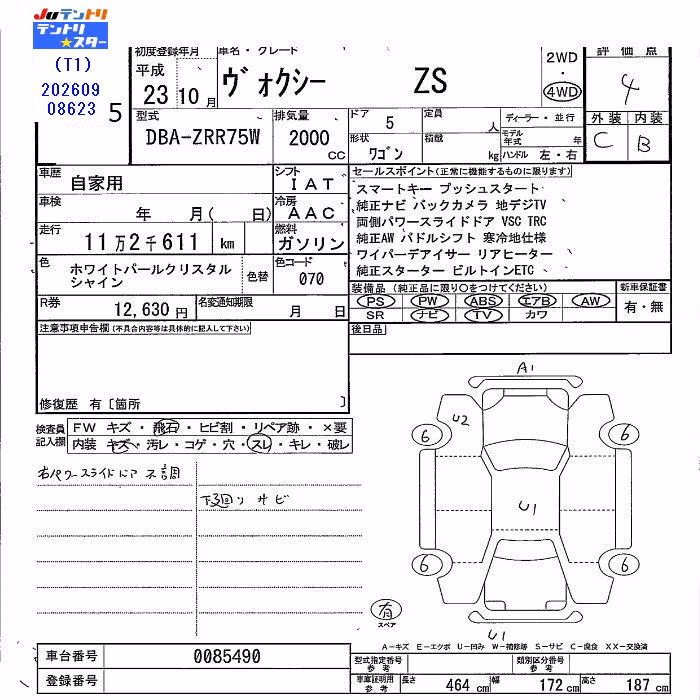 Juテントリ
テントリ
★スター
(T1)
202609
08623
5
初度登録年月
平成
23 10 月
車名・グレード
ヴォクシー ZS
2WD
・
4WD
評価点
4
型式
DBA-ZRR75W
排気量
2000
CC
ドア
5
定員
人
形状
ワゴン
積載
kg
ディーラー・並行
モデル年式
年
ハンドル 左・右
外装 内装
C B
車歴
自家用
シフト
IAT
車検
年 月( 日)
冷房
AAC
走行
11万2千611 km
燃料
ガソリン
色
ホワイトパールクリスタル
シャイン
色替
色コード
070
R券
12,630 円
名変通知期限
月 日
セールスポイント(正常に機能するものに限ります)
スマートキー プッシュスタート
純正ナビ バックカメラ 地デジTV
両側パワースライドドア VSC TRC
純正AW パドルシフト 寒冷地仕様
ワイパーデアイサー リアヒーター
純正スターター ビルトインETC
装備品 (純正品に限り○をつけてください)
PS PW ABS エアB AW
SR ナビ TV カワ
新車保証書
有・無
後日品
注意事項申告欄(不具合内容等は具体的に記入して下さい)
修復歴 有[箇所 ]
検査員
記入欄
FW キズ・飛石・ヒビ割・リペア跡・×要
内装 キズ・汚レ・コゲ・穴・スレ・キレ・破レ
右パワースライドドア 不調
下廻り サビ
A1
U2
6
6
U1
6
6
U1
有
スペア
A-キズ E-エクボ U-凹み W-補修跡 S-サビ C-腐食 XX-交換済
車台番号
0085490
登録番号
型式指定番号
参考
類別区分番号
参考
車庫証明用
参考
長さ 464 cm 幅 172 cm 高さ 187 cm